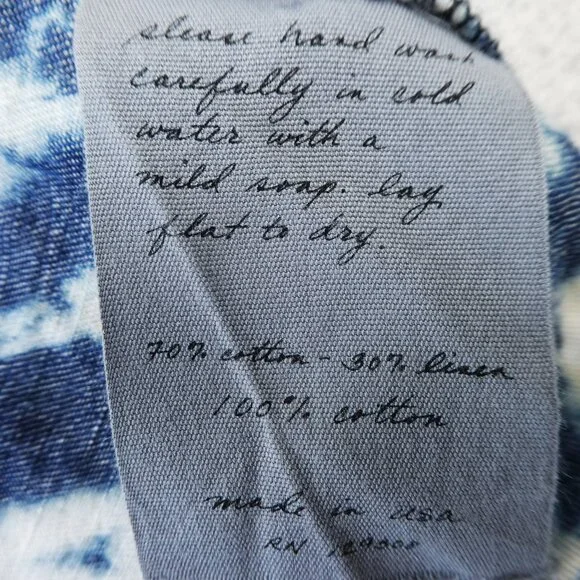 please hand wash
carefully in cold
water with a
mild soap. lay
flat to dry.
70% cotton - 30% linen
100% cotton
made in usa
RN